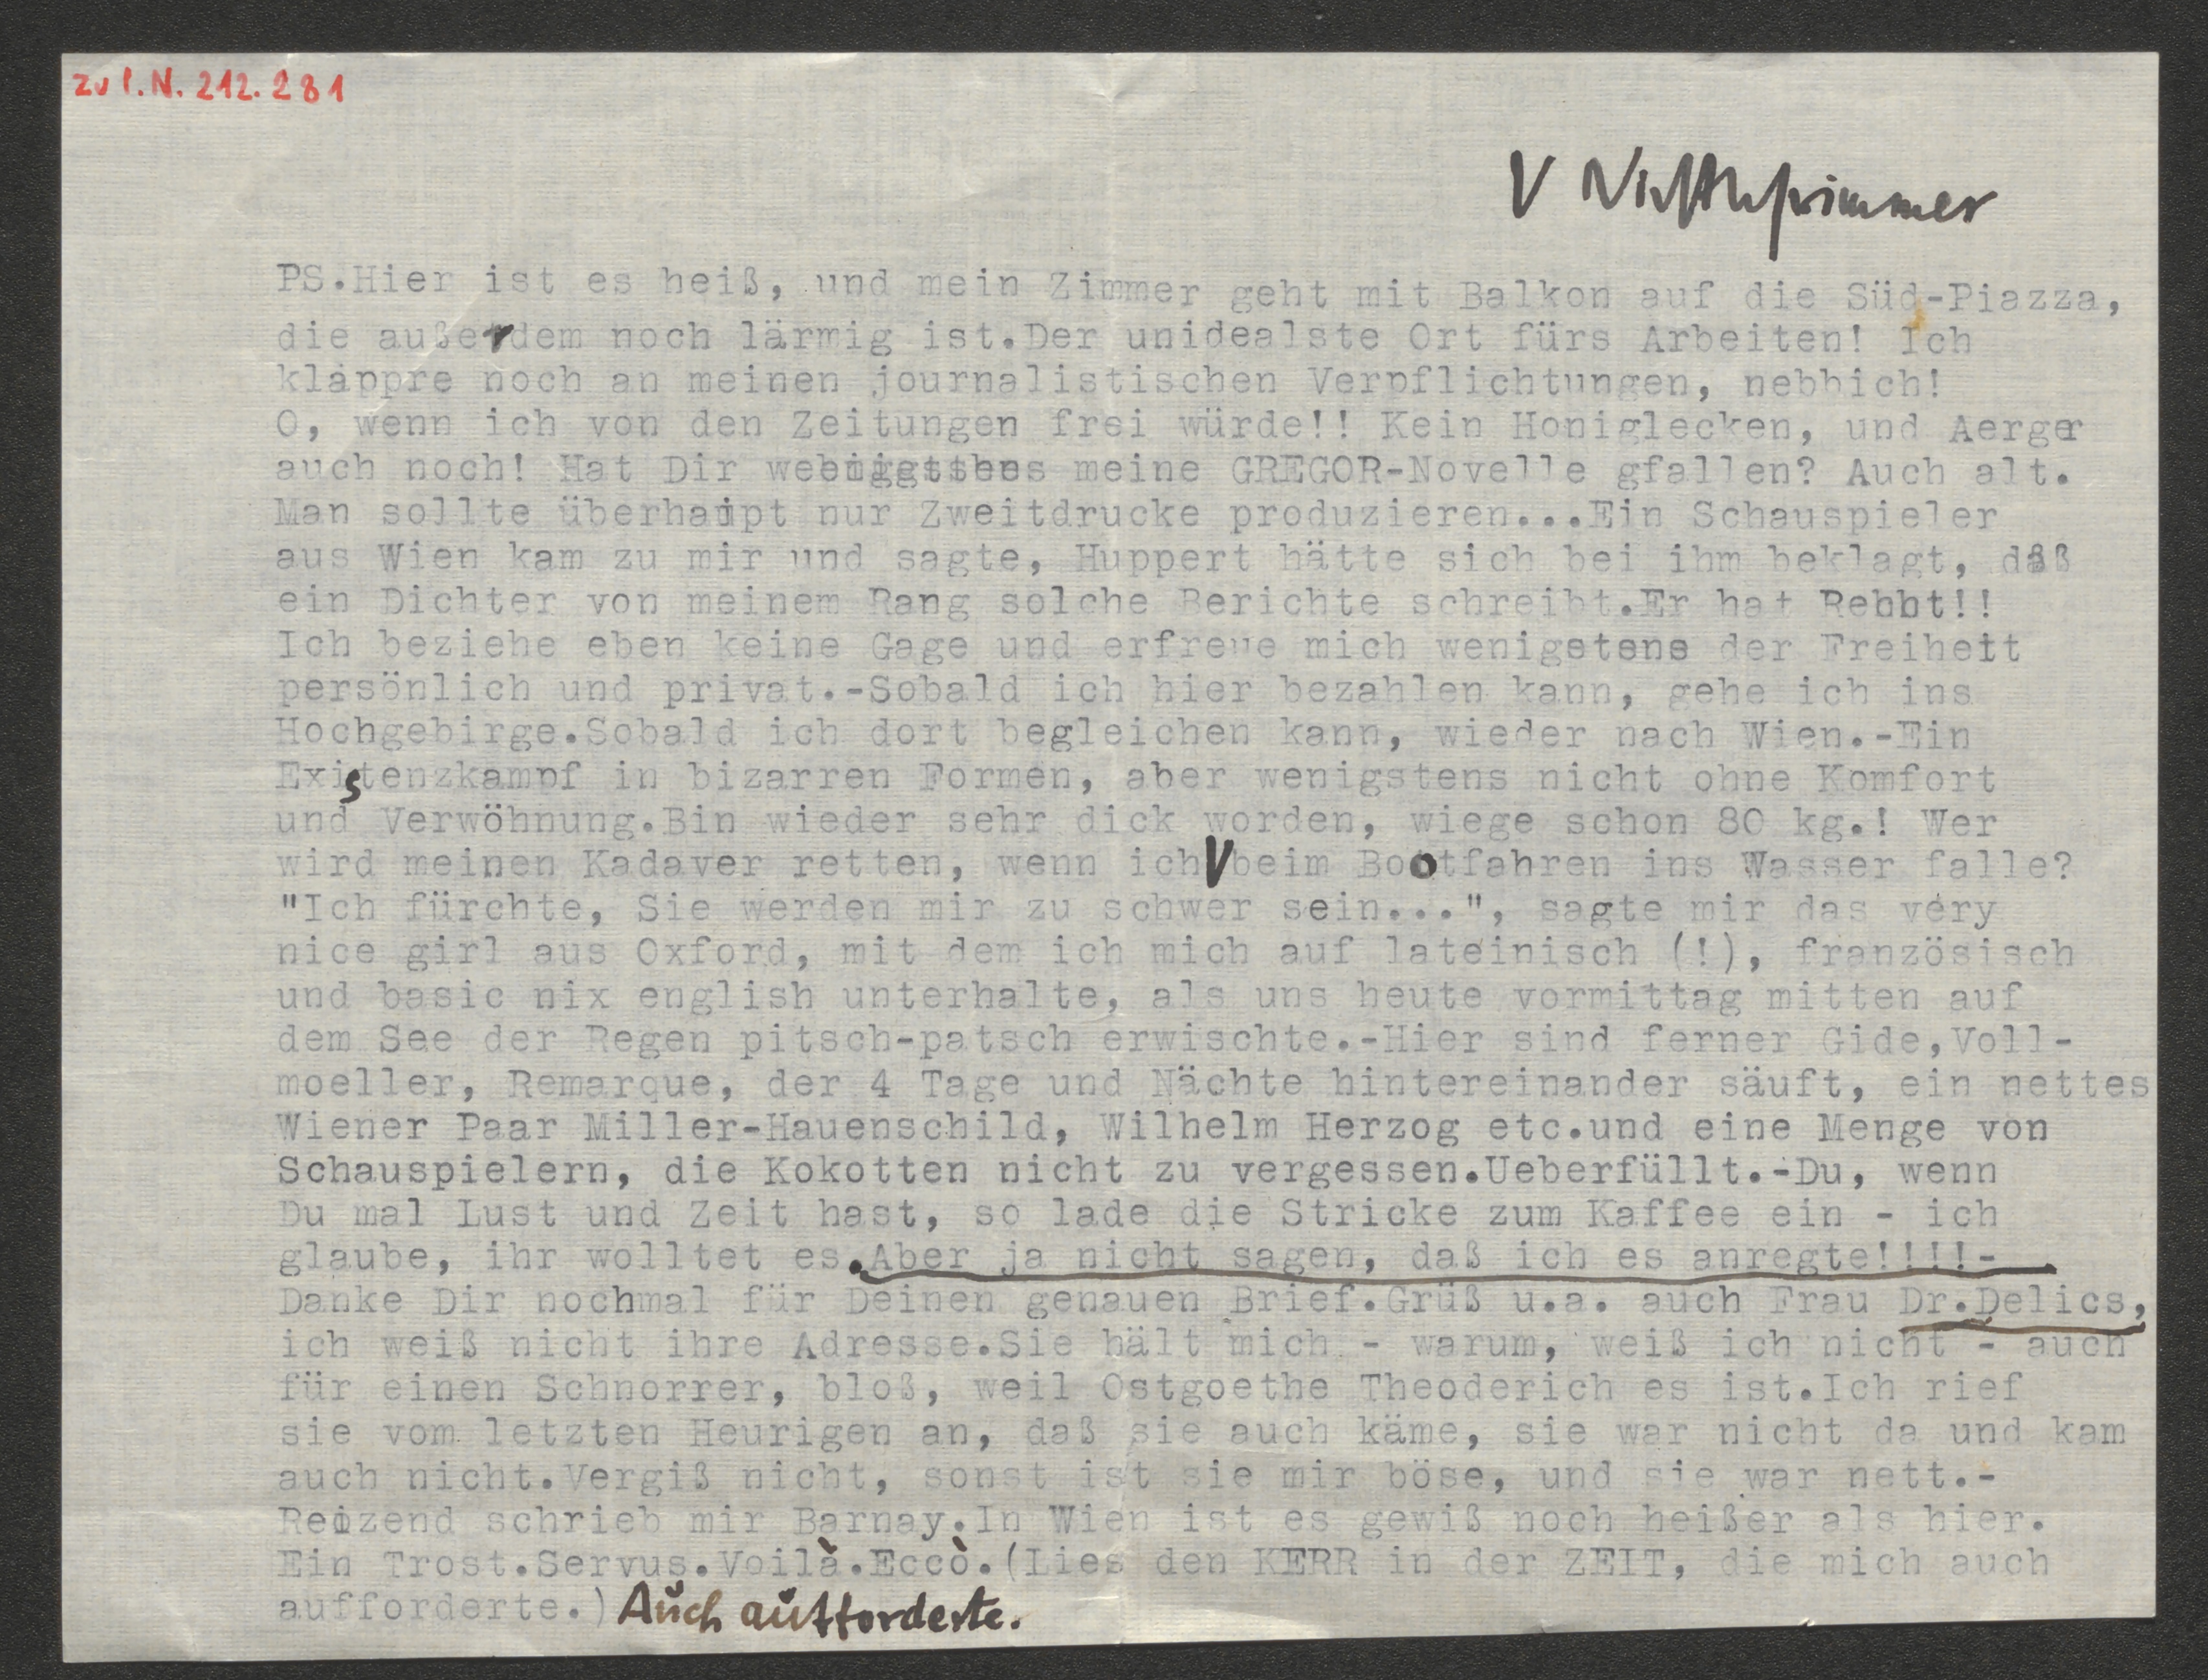 zu I.N. 212.281
V Nichtschwimmer
PS.Hier ist es heiß, und mein Zimmer geht mit Balkon auf die Süd-Piazza,
die außerdem noch lärmig ist.Der unidealste Ort fürs Arbeiten! Ich
klappre noch an meinen journalistischen Verpflichtungen, nebbich!
O, wenn ich von den Zeitungen frei würde!! Kein Honiglecken, und Aerger
auch noch! Hat Dir wenigstens meine GREGOR-Novelle gfallen? Auch alt.
Man sollte überhaupt nur Zweitdrucke produzieren...Ein Schauspieler
aus Wien kam zu mir und sagte, Huppert hätte sich bei ihm beklagt, daß
ein Dichter von meinem Rang solche Berichte schreibt.Er hat Rehht!!
Ich beziehe eben keine Gage und erfreue mich wenigstens der Freiheit
persönlich und privat.-Sobald ich hier bezahlen kann, gehe ich ins
Hochgebirge.Sobald ich dort begleichen kann, wieder nach Wien.-Ein
Existenzkampf in bizarren Formen, aber wenigstens nicht ohne Komfort
und Verwöhnung.Bin wieder sehr dick worden, wiege schon 80 kg.! Wer
wird meinen Kadaver retten, wenn ich V beim Bootfahren ins Wasser falle?
"Ich fürchte, Sie werden mir zu schwer sein...", sagte mir das very
nice girl aus Oxford, mit dem ich mich auf lateinisch (!), französisch
und basic nix english unterhalte, als uns heute vormittag mitten auf
dem See der Regen pitsch-patsch erwischte.-Hier sind ferner Gide,Voll-
moeller, Remarque, der 4 Tage und Nächte hintereinander säuft, ein nettes
Wiener Paar Miller-Hauenschild, Wilhelm Herzog etc.und eine Menge von
Schauspielern, die Kokotten nicht zu vergessen.Ueberfüllt.-Du, wenn
Du mal Lust und Zeit hast, so lade die Stricke zum Kaffee ein - ich
glaube, ihr wolltet es.Aber ja nicht sagen, daß ich es anregte!!!!-
Danke Dir nochmal für Deinen genauen Brief.Grüß u.a. auch Frau Dr.Delics,
ich weiß nicht ihre Adresse.Sie hält mich - warum, weiß ich nicht - auch
für einen Schnorrer, bloß, weil Ostgoethe Theoderich es ist.Ich rief
sie vom letzten Heurigen an, daß sie auch käme, sie war nicht da und kam
auch nicht.Vergiß nicht, sonst ist sie mir böse, und sie war nett.-
Reizend schrieb mir Barnay.In Wien ist es gewiß noch heißer als hier.
Ein Trost.Servus.Voilà.Eccò.(Lies den KERR in der ZEIT, die mich auch
aufforderte.) Auch aufforderte.